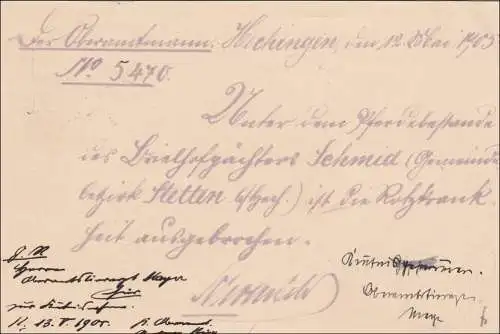 Der Oberamtmann. Hechingen, den 12. Mai 1905
No 5470.
Unter dem Pferdebestande
des Brielhofpächters Schmid (Gemeinde
bezirk Stetten b/Hech.) ist die Rotzkrank
heit ausgebrochen.
Herrn
Oberamtstierarzt
hier
13. V. 1905. K. Oberamt
Oberamtstierarzt